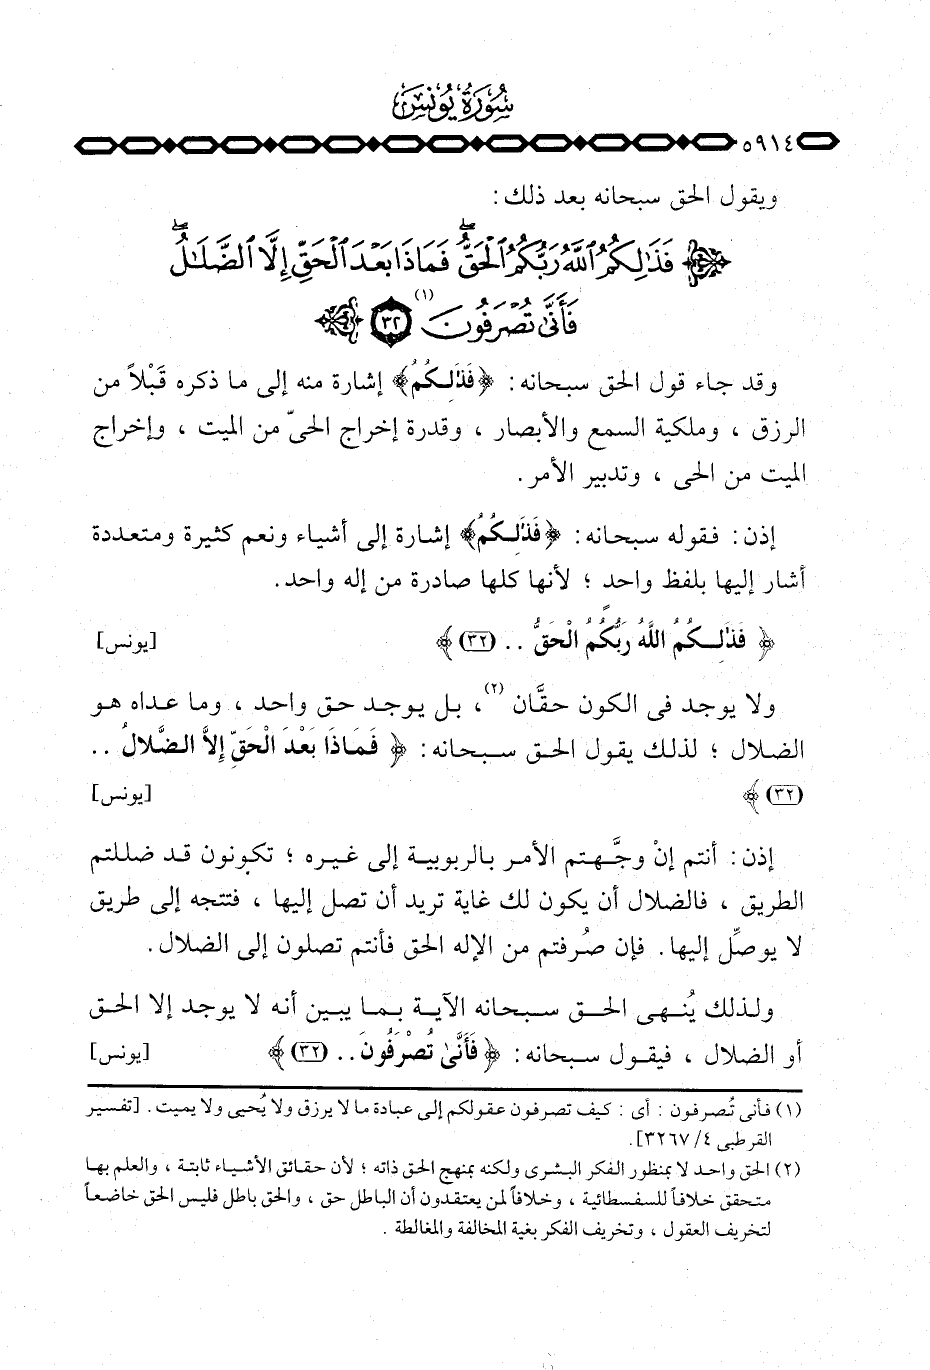 سُورَةُ يُونُسَ
٥٩١٤
ويقول الحق سبحانه بعد ذلك :
فَذَٰلِكُمُ ٱللَّهُ رَبُّكُمُ ٱلْحَقُّ ۖ فَمَاذَا بَعْدَ ٱلْحَقِّ إِلَّا ٱلضَّلَٰلُ ۖ
فَأَنَّىٰ تُصْرَفُونَ (١) ٣٢
وقد جاء قول الحق سبحانه : ﴿ فَذَٰلِكُمُ ﴾ إشارة منه إلى ما ذكره قَبْلاً من
الرزق ، وملكية السمع والأبصار ، وقدرة إخراج الحىّ من الميت ، وإخراج
الميت من الحى ، وتدبير الأمر .
إذن : فقوله سبحانه : ﴿ فَذَٰلِكُمُ ﴾ إشارة إلى أشياء ونعم كثيرة ومتعددة
أشار إليها بلفظ واحد ؛ لأنها كلها صادرة من إله واحد .
﴿ فَذَٰلِكُمُ اللَّهُ رَبُّكُمُ الْحَقُّ .. (٣٢) ﴾ [يونس]
ولا يوجد فى الكون حقَّان (٢) ، بل يوجد حق واحد ، وما عداه هو
الضلال ؛ لذلك يقول الحق سبحانه : ﴿ فَمَاذَا بَعْدَ الْحَقِّ إِلاَّ الضَّلالُ ..
(٣٢) ﴾ [يونس]
إذن : أنتم إنْ وجَّهتم الأمر بالربوبية إلى غيره ؛ تكونون قد ضللتم
الطريق ، فالضلال أن يكون لك غاية تريد أن تصل إليها ، فتتجه إلى طريق
لا يوصِّل إليها . فإن صُرفتم من الإله الحق فأنتم تصلون إلى الضلال .
ولذلك يُنهى الحق سبحانه الآية بما يبين أنه لا يوجد إلا الحق
أو الضلال ، فيقول سبحانه : ﴿ فَأَنَّىٰ تُصْرَفُونَ .. (٣٢) ﴾ [يونس]
(١) فأنى تُصرفون : أى : كيف تصرفون عقولكم إلى عبادة ما لا يرزق ولا يُحيى ولا يميت . [تفسير
القرطبى ٤/ ٣٢٦٧] .
(٢) الحق واحد لا بمنظور الفكر البشرى ولكنه بمنهج الحق ذاته ؛ لأن حقائق الأشياء ثابتة ، والعلم بها
متحقق خلافاً للسفسطائية ، وخلافاً لمن يعتقدون أن الباطل حق ، والحق باطل فليس الحق خاضعاً
لتخريف العقول ، وتخريف الفكر بغية المخالفة والمغالطة .